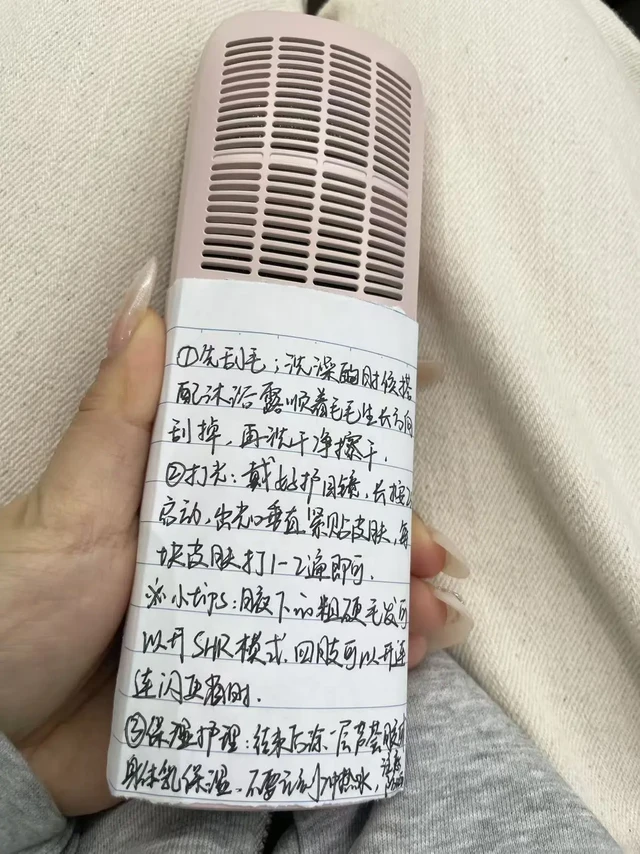 ①先刮毛；洗澡的时候搭
配沐浴露顺着毛毛生长方向
刮掉，再洗干净擦干.
②打光：戴好护目镜，长按
启动，出光口垂直紧贴皮肤，每
块皮肤打1-2遍即可.
※小tips：腋下的粗硬毛发可
以开SHR模式.四肢可以开连
连闪更省时.
③保湿护理：结束后涂一层芦荟胶或
身体乳保湿，不要立刻冲热水，